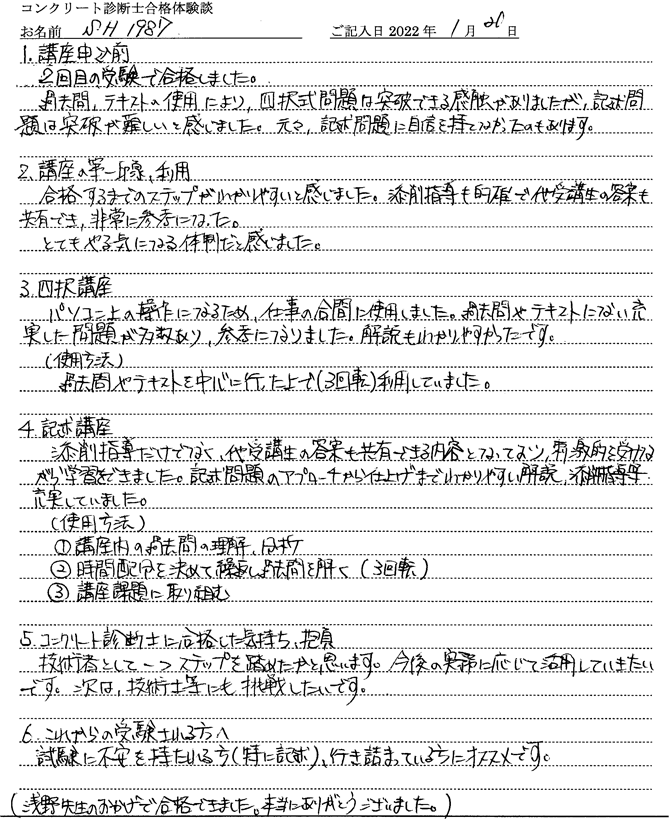 コンクリート診断士合格体験談
お名前 SH 1987 ご記入日 2022 年 1 月 20 日
1.講座申込前
2回目の受験で合格しました。
過去問,テキストの使用により,四択式問題は突破できる感触がありましたが,記述問
題は突破が難しいと感じました。元々,記述問題に自信を持てなかったのもあります。
2.講座の第一印象,利用
合格するまでのステップがわかりやすいと感じました。添削指導も的確で他受講生の答案も
共有でき,非常に参考になった。
とてもやる気になる体制だと感じました。
3.四択講座
パソコン上の操作になるため,仕事の合間に使用しました。過去問やテキストにない充
実した問題が多数あり,参考になりました。解説もわかりやすかったです。
(使用方法)
過去問やテキストを中心に行った上で(3回転)利用していました。
4.記述講座
添削指導だけでなく,他受講生の答案も共有できる内容となっており,刺激を受けな
がら学習をできました。記述問題のアプローチから仕上げまでわかりやすい解説,添削指導等
充実していました。
(使用方法)
①講座内の過去問の理解,分析
②時間配分を決めて繰返し過去問を解く(3回転)
③講座課題に取り組む
5.コンクリート診断士に合格した気持ち,抱負
技術者として一つステップを踏めたかと思います。今後の実務に応じて活用していきたい
です。次は,技術士等にも挑戦したいです。
6.これからの受験される方へ
試験に不安を持たれる方(特に記述),行き詰まっている方にオススメです。
(浅野先生のおかげで合格できました。本当にありがとうございました。)